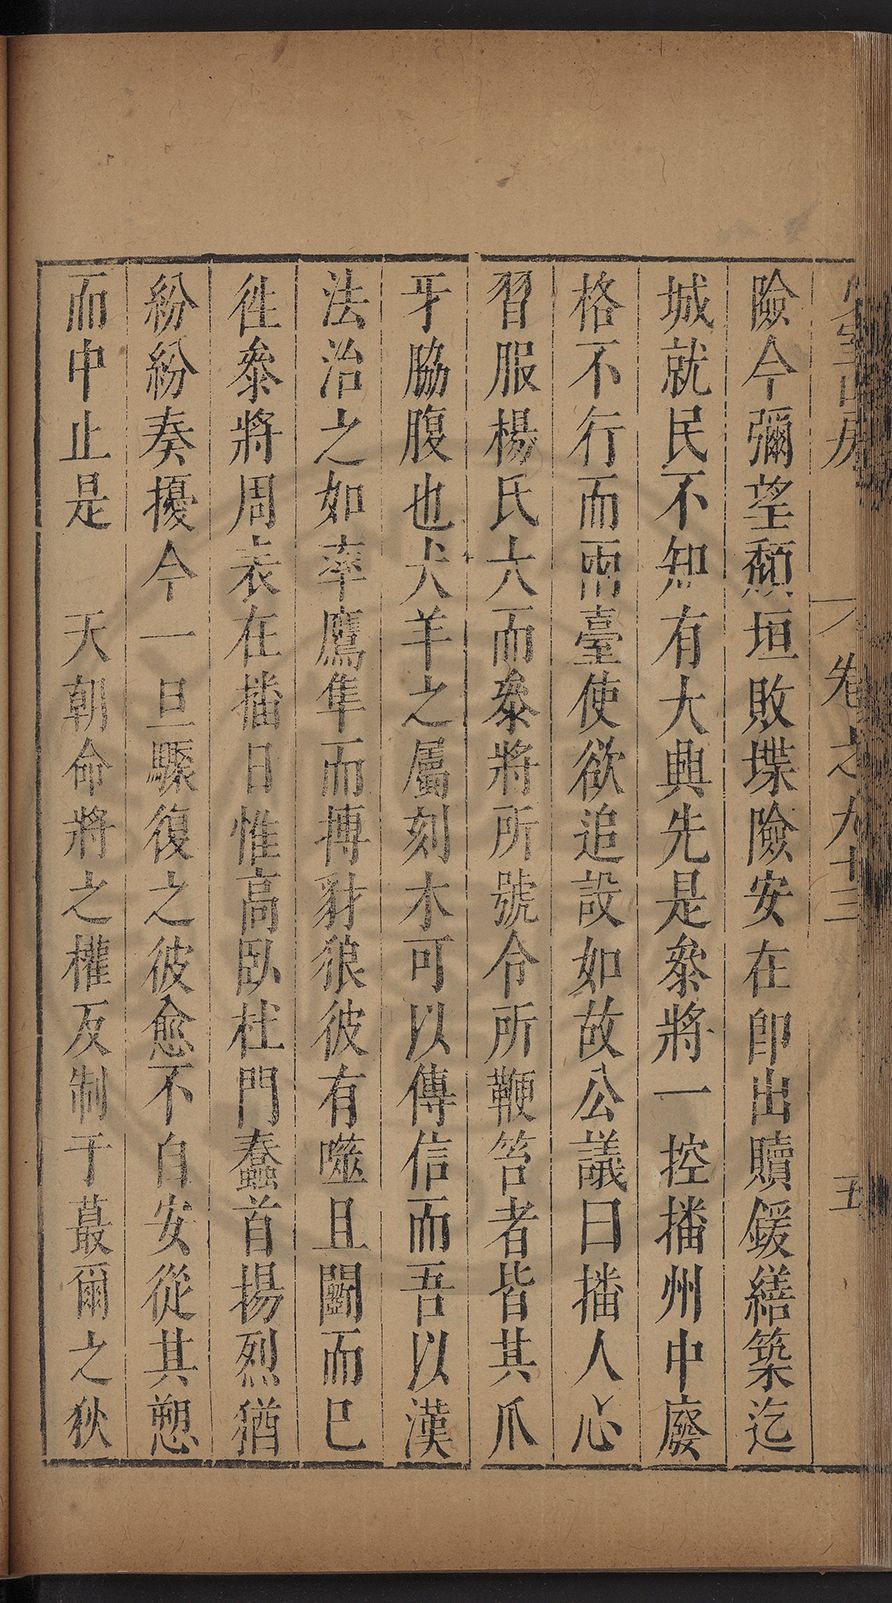 少室山房 卷之九十三 五
險今彌望頹垣敗堞險安在卽出贖鍰繕築迄
城就民不知有大興先是叅將一控播州中廢
格不行而兩臺使欲追設如故公議曰播人心
習服楊氏大而叅將所號令所鞭笞者皆其爪
牙脇腹也犬羊之屬刻木可以傳信而吾以漢
法治之如率鷹隼而搏豺狼彼有噬且鬭而已
徃叅將周表在播日惟高臥杜門蠢首揚烈猶
紛紛奏擾今一旦驟復之彼愈不自安從其愬
而中止是 天朝命將之權反制于蕞爾之狄